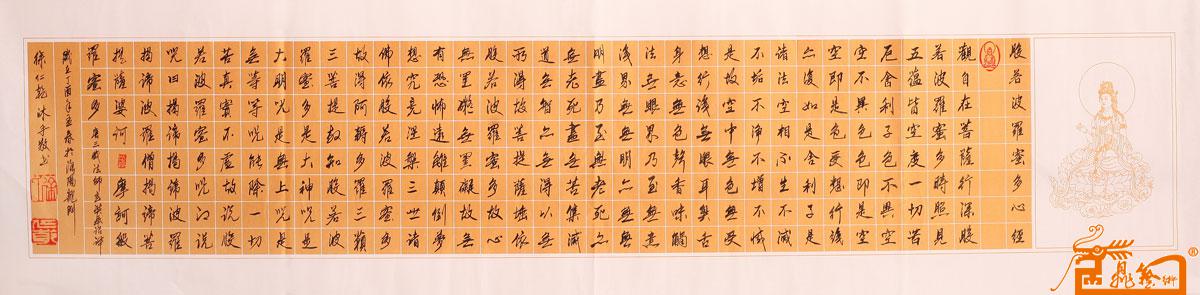 般若波羅蜜多心經
觀自在菩薩行深般
若波羅蜜多時照見
五蘊皆空度一切苦
厄舍利子色不異空
空不異色色即是空
空即是色受想行識
亦復如是舍利子是
諸法空相不生不滅
不垢不淨不增不減
是故空中無色無受
想行識無眼耳鼻舌
身意無色聲香味觸
法無眼界乃至無意
識界無無明亦無無
明盡乃至無老死亦
無老死盡無苦集滅
道無智亦無得以無
所得故菩提薩埵依
般若波羅蜜多故心
無罣礙無罣礙故無
有恐怖遠離顛倒夢
想究竟涅槃三世諸
佛依般若波羅蜜多
故得阿耨多羅三藐
三菩提故知般若波
羅蜜多是大神咒是
大明咒是無上咒是
無等等咒能除一切
苦真實不虛故說般
若波羅蜜多咒即說
咒曰揭諦揭諦波羅
揭諦波羅僧揭諦菩
提薩婆訶 摩訶般
羅蜜多 唐三藏法師玄奘奉詔譯
歲在丁酉年孟春於洛陽龍門
徐仁龍沐手敬書